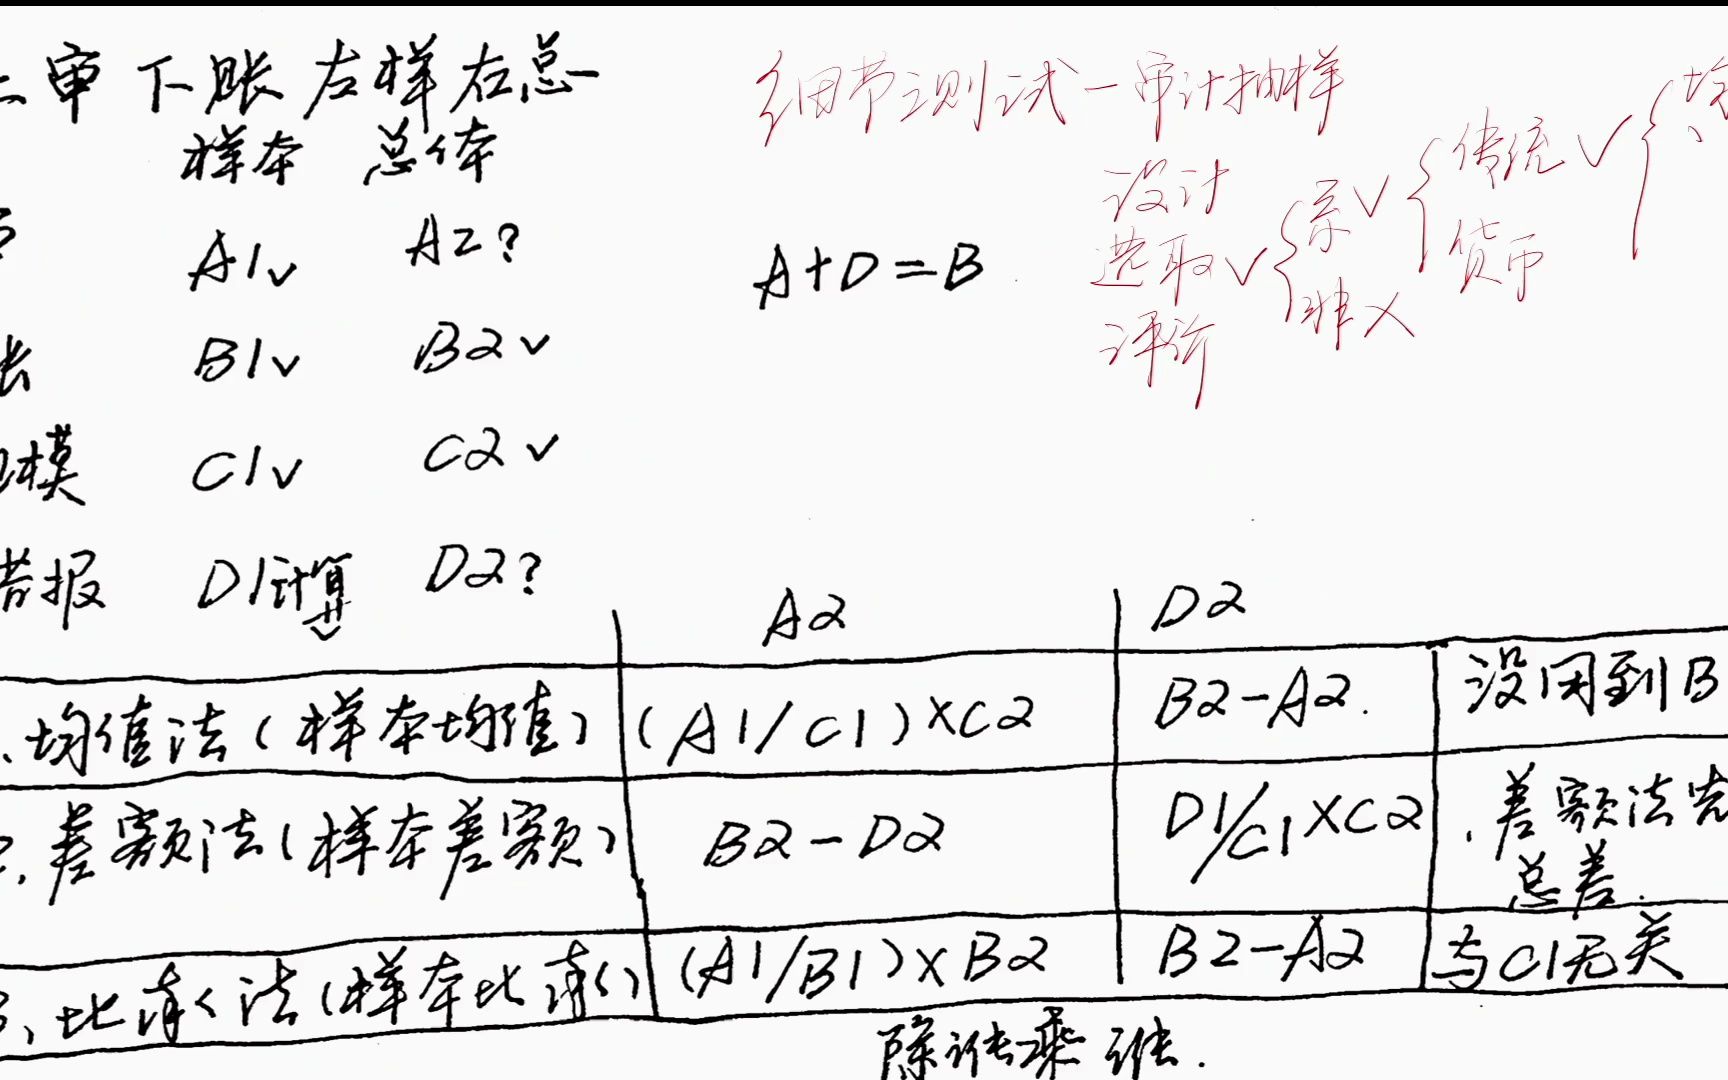 二审下账左样右总
样本 总体
A1✓ A2?
B1✓ B2✓
模 C1✓ C2✓
若报 D1计算 D2?
A+D=B
细节测试-审计抽样
设计
选取✓
评价
系✓
非✗
传统✓
货币
A2 D2
均值法(样本均值) (A1/C1)×C2 B2-A2. 没用到B
2.差额法(样本差额) B2-D2 D1/C1×C2 差额法先
总差.
3、比率法(样本比率) (A1/B1)×B2 B2-A2 与C1无关
除谁乘谁.